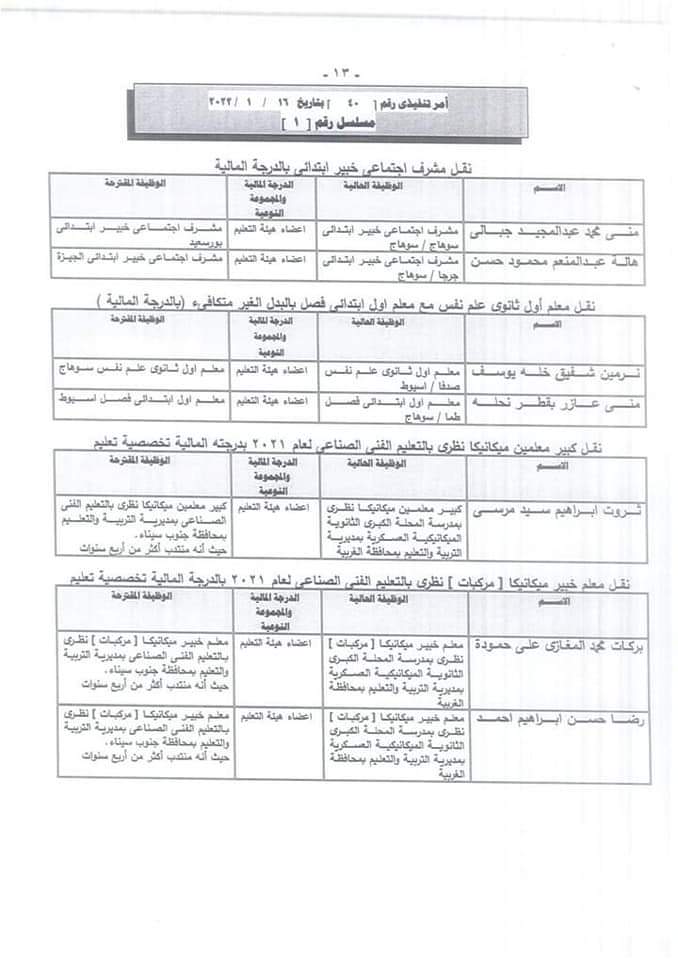 - ١٣ -
أمر تنفيذى رقم [ ٤٠ ] بتاريخ ١٦ / ١ / ٢٠٢٢
مسلسل رقم [ ١ ]
نقل مشرف اجتماعى خبير ابتدائى بالدرجة المالية
الاسم
الوظيفة الحالية
الدرجة المالية
والمجموعة
النوعية
الوظيفة المقترحة
منى محمد عبدالمجيد جبالى
مشرف اجتماعى خبير ابتدائى
سوهاج / سوهاج
اعضاء هيئة التعليم
مشرف اجتماعى خبير ابتدائى
بورسعيد
هالة عبدالمنعم محمود حسن
مشرف اجتماعى خبير ابتدائى
جرجا / سوهاج
اعضاء هيئة التعليم
مشرف اجتماعى خبير ابتدائى الجيزة
نقل معلم أول ثانوى علم نفس مع معلم اول ابتدائى فصل بالبدل الغير متكافىء (بالدرجة المالية )
الاسم
الوظيفة الحالية
الدرجة المالية
والمجموعة
النوعية
الوظيفة المقترحة
نرمين شفيق خله يوسف
معلم اول ثانوى علم نفس
صدفا / اسيوط
اعضاء هيئة التعليم
معلم اول ثانوى علم نفس سوهاج
منى عازر بقطر نخله
معلم اول ابتدائى فصل
طما / سوهاج
اعضاء هيئة التعليم
معلم اول ابتدائى فصل اسيوط
نقل كبير معلمين ميكانيكا نظرى بالتعليم الفنى الصناعى لعام ٢٠٢١ بدرجته المالية تخصصية تعليم
الاسم
الوظيفة الحالية
الدرجة المالية
والمجموعة
النوعية
الوظيفة المقترحة
ثروت ابراهيم سيد مرسى
كبير معلمين ميكانيكا نظرى
بمدرسة المحلة الكبرى الثانوية
الميكانيكية العسكرية بمديرية
التربية والتعليم بمحافظة الغربية
اعضاء هيئة التعليم
كبير معلمين ميكانيكا نظرى بالتعليم الفنى
الصناعى بمديرية التربية والتعليم
بمحافظة جنوب سيناء .
حيث أنه منتدب أكثر من أربع سنوات
نقل معلم خبير ميكانيكا [ مركبات ] نظرى بالتعليم الفنى الصناعى لعام ٢٠٢١ بالدرجة المالية تخصصية تعليم
الاسم
الوظيفة الحالية
الدرجة المالية
والمجموعة
النوعية
الوظيفة المقترحة
بركات محمد المغازى على حمودة
معلم خبير ميكانيكا [ مركبات ]
نظرى بمدرسة المحلة الكبرى
الثانوية الميكانيكية العسكرية
بمديرية التربية والتعليم بمحافظة
الغربية
اعضاء هيئة التعليم
معلم خبير ميكانيكا [ مركبات ] نظرى
بالتعليم الفنى الصناعى بمديرية التربية
والتعليم بمحافظة جنوب سيناء .
حيث أنه منتدب أكثر من أربع سنوات
رضا حسن ابراهيم احمد
معلم خبير ميكانيكا [ مركبات ]
نظرى بمدرسة المحلة الكبرى
الثانوية الميكانيكية العسكرية
بمديرية التربية والتعليم بمحافظة
الغربية
اعضاء هيئة التعليم
معلم خبير ميكانيكا [ مركبات ] نظرى
بالتعليم الفنى الصناعى بمديرية التربية
والتعليم بمحافظة جنوب سيناء .
حيث أنه منتدب أكثر من أربع سنوات